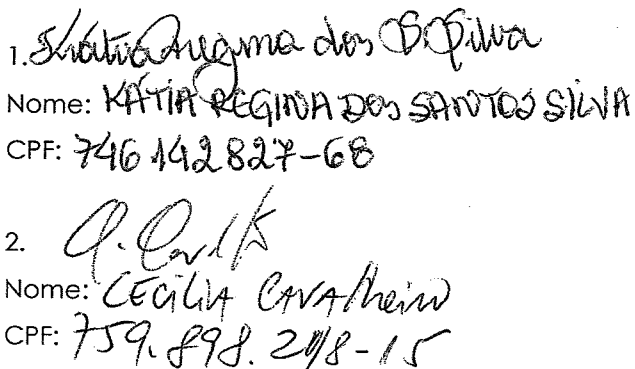 1. Kátia Regina dos S. Silva
Nome: KÁTIA REGINA DOS SANTOS SILVA
CPF: 746 142 827-68
2.
Nome: CECÍLIA CAVALheiro
CPF: 759.898.